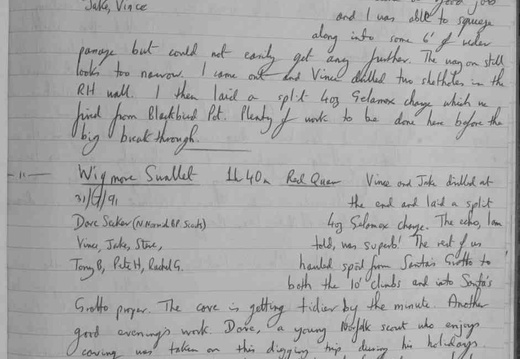 Jake, Vince
and I was able to squeeze
along into some 6' of wider
passage but could not easily get any further. The way on still
looks too narrow. I came out and Vince drilled two shotholes in the
RH wall. I then laid a split 4oz Gelamex charge which we
fired from Blackbird Pot. Plenty of work to be done here before the
big breakthrough.
— " — Wigmore Swallet 1h 40m Red Quar Vince and Jake drilled at
31/7/91 the end and laid a split
Dave Seeker (N. Norand BP Scouts) 4oz Gelamex charge. The echo, I am
Vince, Jake, Steve, told, was superb! The rest of us
Tony B, Pete H, Rachel G. hauled spoil from Santa's Grotto to
both the 10' climbs and into Santa's
Grotto proper. The cave is getting tidier by the minute. Another
good evening's work. Dave, a young Norfolk scout who enjoys
caving was taken on this digging trip during his holidays